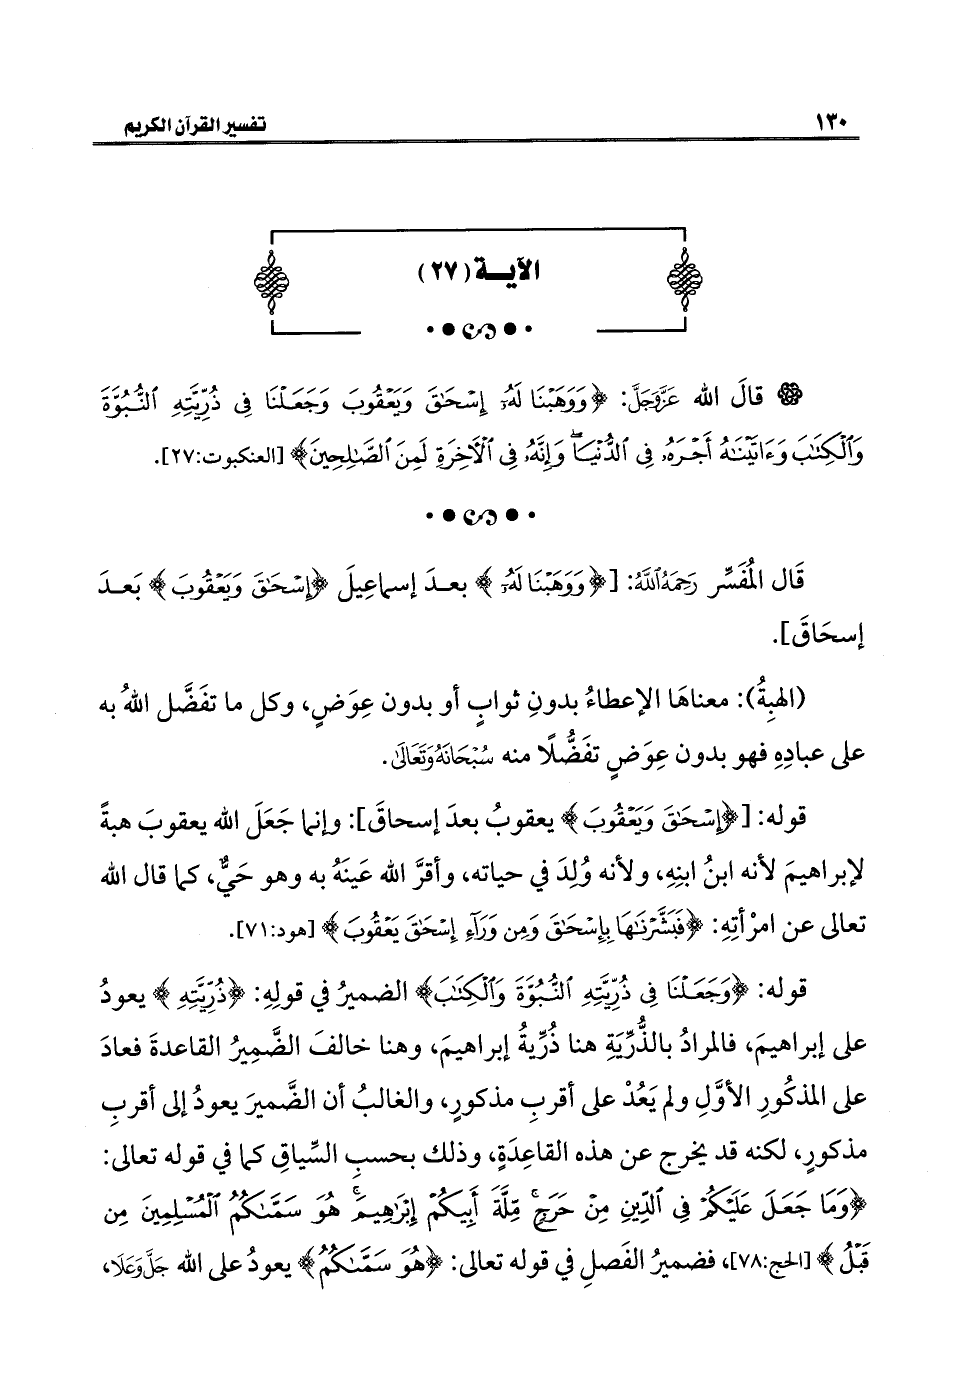 ١٣٠
تفسير القرآن الكريم
الآيــة (٢٧)
قالَ الله عَزَّوَجَلَّ: ﴿وَوَهَبْنَا لَهُۥ إِسْحَٰقَ وَيَعْقُوبَ وَجَعَلْنَا فِى ذُرِّيَّتِهِ ٱلنُّبُوَّةَ
وَٱلْكِتَٰبَ وَءَاتَيْنَٰهُ أَجْرَهُۥ فِى ٱلدُّنْيَا ۖ وَإِنَّهُۥ فِى ٱلْـَٔاخِرَةِ لَمِنَ ٱلصَّٰلِحِينَ﴾ [العنكبوت:٢٧].
قَال المُفَسِّر رَحِمَهُ ٱللَّهُ: [﴿وَوَهَبْنَا لَهُۥ﴾ بعـدَ إسماعِيلَ ﴿إِسْحَٰقَ وَيَعْقُوبَ﴾ بَعـدَ
إسحَاقَ].
(الهِبةُ): معناهَا الإعطاءُ بدونِ ثوابٍ أو بدون عِوَضٍ، وكل ما تفَضَّل اللهُ به
على عبادِهِ فهو بدون عِوَضٍ تفَضُّلًا منه سُبْحَانَهُ وَتَعَالَىٰ.
قوله: [﴿إِسْحَٰقَ وَيَعْقُوبَ﴾ يعقوبُ بعدَ إسحاقَ]: وإنما جَعَلَ الله يعقوبَ هبةً
لإبراهيمَ لأنه ابنُ ابنِهِ، ولأنه وُلِدَ في حياته، وأقرَّ الله عَينَهُ به وهو حَيٌّ، كما قال الله
تعالى عن امرْأتِهِ: ﴿فَبَشَّرْنَٰهَا بِإِسْحَٰقَ وَمِن وَرَآءِ إِسْحَٰقَ يَعْقُوبَ﴾ [هود:٧١].
قوله: ﴿وَجَعَلْنَا فِى ذُرِّيَّتِهِ ٱلنُّبُوَّةَ وَٱلْكِتَٰبَ﴾ الضميرُ في قولِهِ: ﴿ذُرِّيَّتِهِ﴾ يعودُ
على إبراهيمَ، فالمرادُ بالذُّرِّيَةِ هنا ذُرِّيةُ إبراهيمَ، وهنا خالفَ الضَّمِيرُ القاعدةَ فعادَ
على المذكُورِ الأوَّلِ ولم يَعُدْ على أقربِ مذكورٍ، والغالبُ أن الضَّميرَ يعودُ إلى أقربِ
مذكورٍ، لكنه قد يخرج عن هذه القاعِدَةِ، وذلك بحسبِ السِّياقِ كما في قوله تعالى:
﴿وَمَا جَعَلَ عَلَيْكُمْ فِى ٱلدِّينِ مِنْ حَرَجٍ ۚ مِّلَّةَ أَبِيكُمْ إِبْرَٰهِيمَ ۚ هُوَ سَمَّىٰكُمُ ٱلْمُسْلِمِينَ مِن
قَبْلُ﴾ [الحج:٧٨]، فضميرُ الفَصلِ في قوله تعالى: ﴿هُوَ سَمَّىٰكُمُ﴾ يعودُ على الله جَلَّ وَعَلَا،